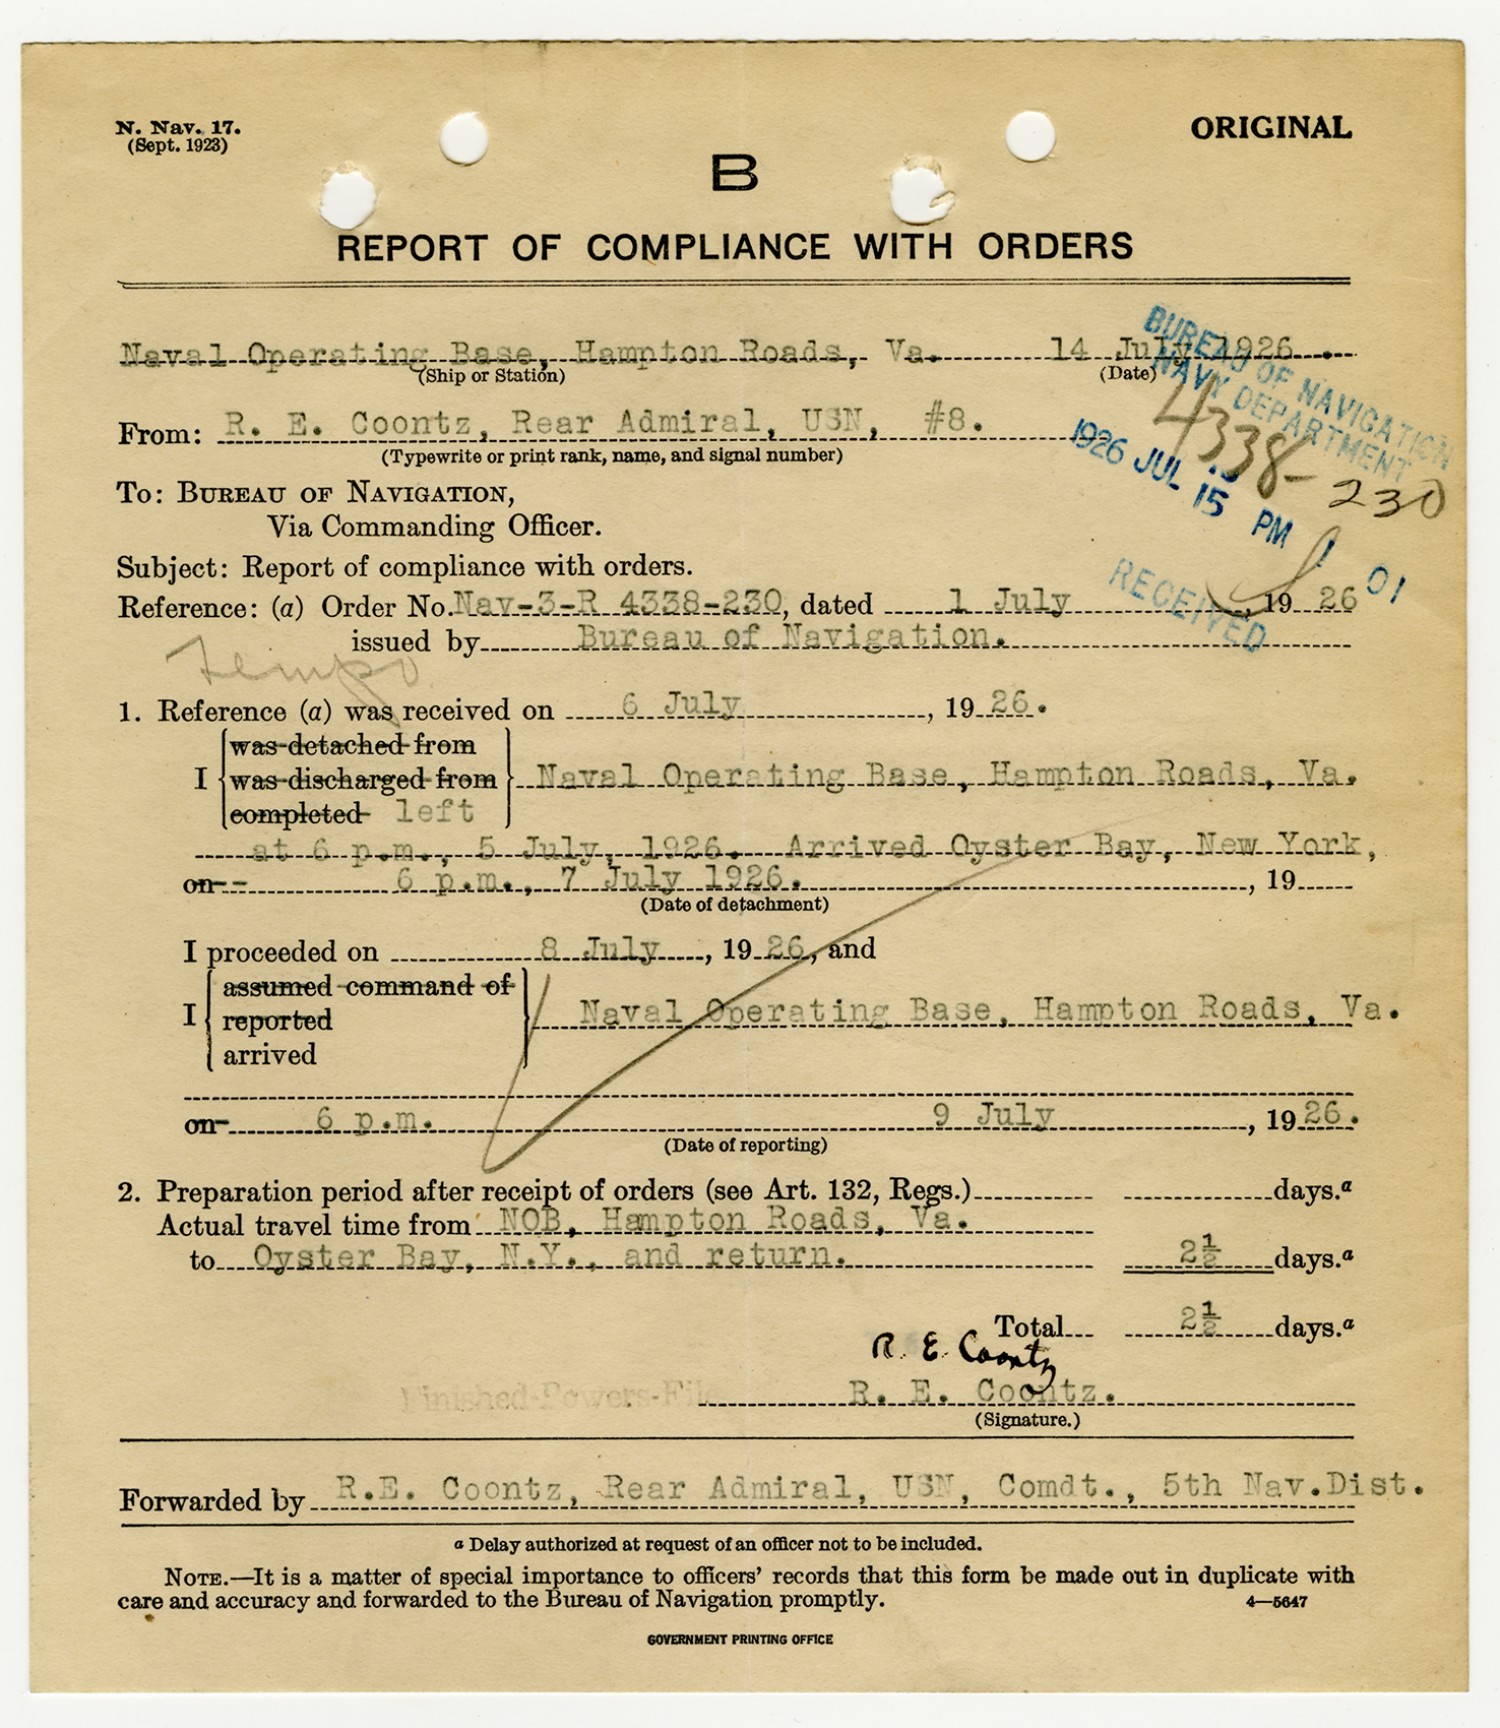 N. Nav. 17.
(Sept. 1923)
ORIGINAL
B
REPORT OF COMPLIANCE WITH ORDERS
Naval Operating Base, Hampton Roads, Va. 14 July 1926.
(Ship or Station) (Date)
BUREAU OF NAVIGATION
NAVY DEPARTMENT
4338-230
1926 JUL 15 PM 1 01
RECEIVED
From: R. E. Coontz, Rear Admiral, USN, #8.
(Typewrite or print rank, name, and signal number)
To: BUREAU OF NAVIGATION,
Via Commanding Officer.
Subject: Report of compliance with orders.
Reference: (a) Order No. Nav-3-R 4338-230, dated 1 July, 19 26
issued by Bureau of Navigation.
tempo
1. Reference (a) was received on 6 July, 19 26.
was detached from
I was discharged from Naval Operating Base, Hampton Roads, Va.
completed left
at 6 p.m., 5 July, 1926. Arrived Oyster Bay, New York,
on 6 p.m., 7 July 1926. , 19
(Date of detachment)
I proceeded on 8 July, 19 26, and
assumed command of
I reported Naval Operating Base, Hampton Roads, Va.
arrived
on 6 p.m. 9 July, 19 26.
(Date of reporting)
2. Preparation period after receipt of orders (see Art. 132, Regs.) days.a
Actual travel time from NOB, Hampton Roads, Va.
to Oyster Bay, N.Y., and return. 2½ days.a
Total 2½ days.a
R. E. Coontz
Finished-Powers-File R. E. Coontz.
(Signature.)
Forwarded by R.E. Coontz, Rear Admiral, USN, Comdt., 5th Nav.Dist.
a Delay authorized at request of an officer not to be included.
NOTE.—It is a matter of special importance to officers' records that this form be made out in duplicate with
care and accuracy and forwarded to the Bureau of Navigation promptly. 4—5647
GOVERNMENT PRINTING OFFICE